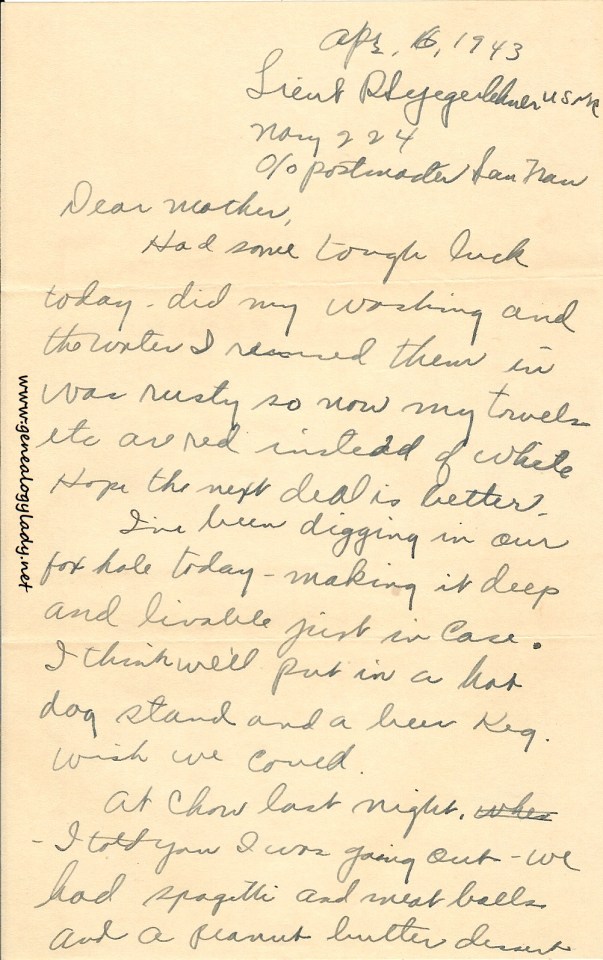 Apr. 6, 1943
Lieut R Yegerlehner USNR
Navy 224
c/o postmaster San Fran
Dear Mother,
Had some tough luck
today - did my washing and
the water I rinsed them in
was rusty so now my towels
etc are red instead of white
Hope the next deal is better.
I've been digging in our
fox hole today - making it deep
and livable just in case.
I think we'll put in a hot
dog stand and a beer keg.
Wish we could.
At chow last night, when
- I told you I was going out - we
had spagetti and meat balls
and a peanut butter dessert
www.genealogylady.net